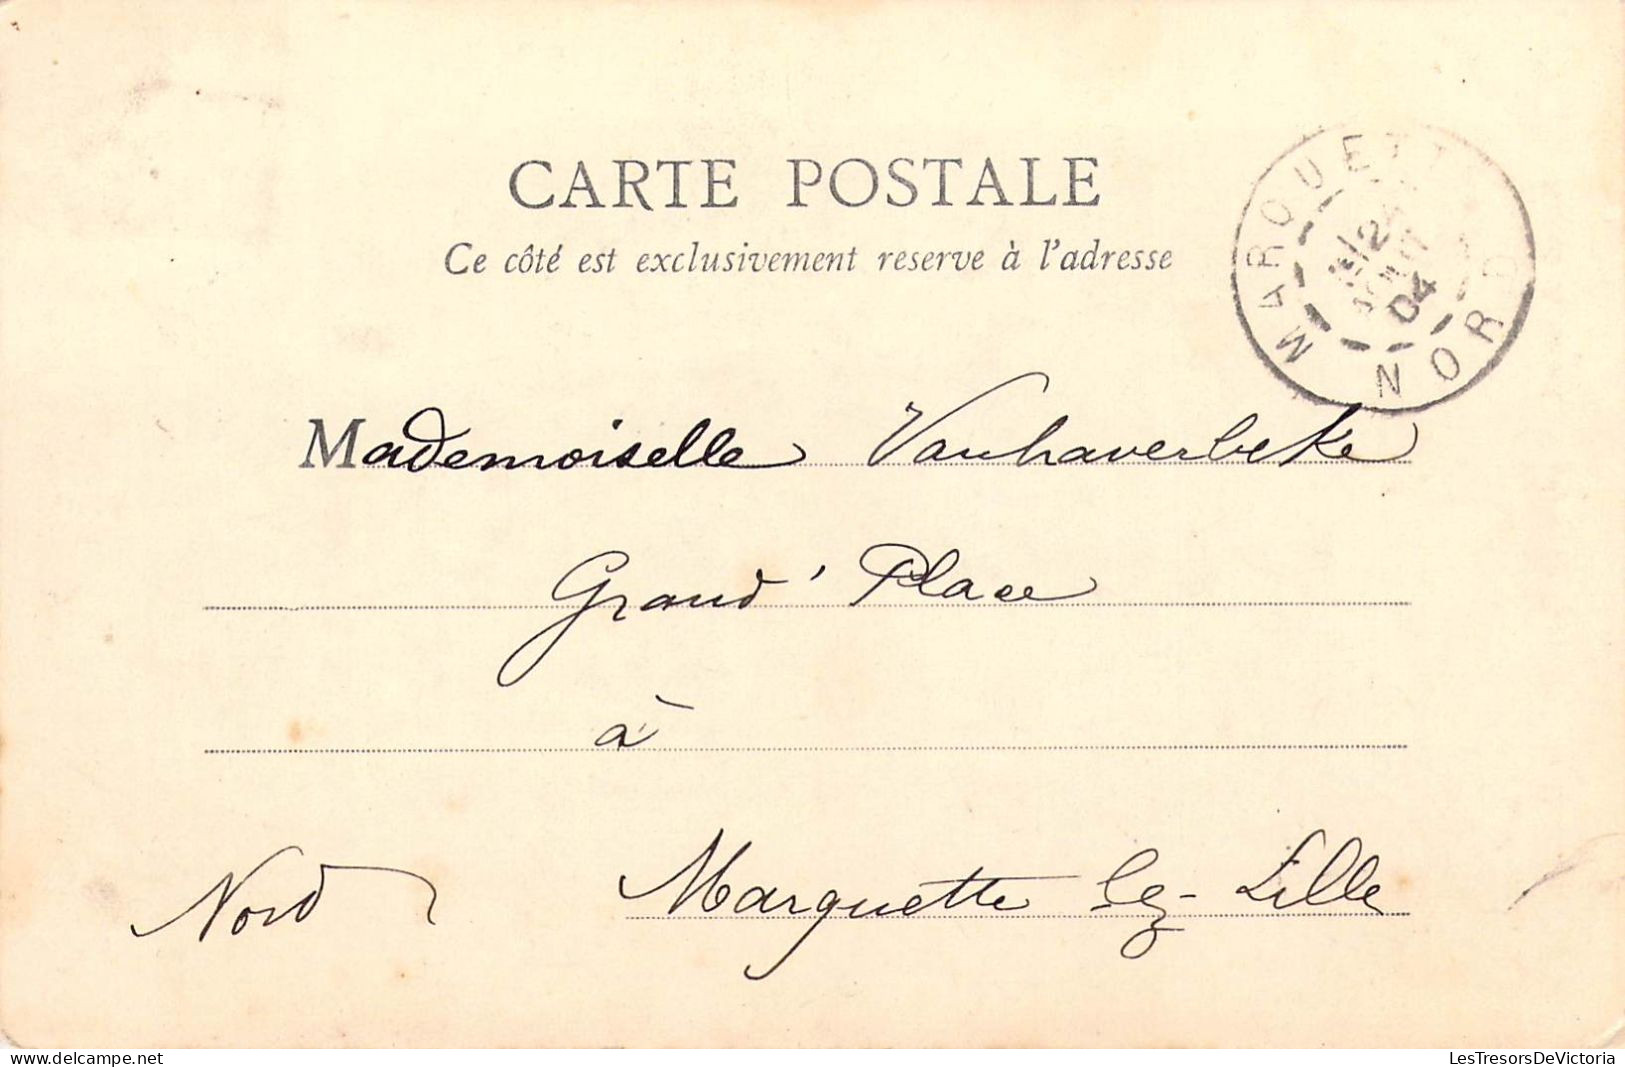 CARTE POSTALE
Ce côté est exclusivement reserve à l'adresse
MARQUETTE NORD
04
Mademoiselle Vanhaverbeke
Grand' Place
à
Marquette lez-Lille
Nord
delcampe.net
LesTresorsDeVictoria